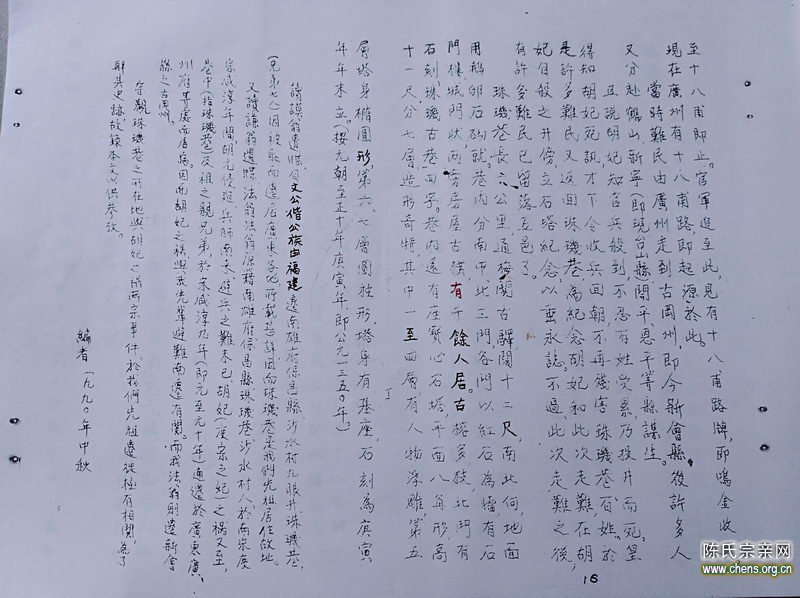 至十八甫即止。官軍進至此，見有十八甫路牌，即鳴金收
現在廣州有十八甫路，即起源於此。
當時難民由廣州走到古岡州，即今新會縣，後許多人
又分赴鶴山新寧（即現台山縣）開平、恩平等縣謀生。
且說胡妃知官兵殺到不忍百姓受累乃投井而死，皇
得知胡妃死訊才下令收兵回朝，不再殘害珠璣巷百姓，於
是許多難民又返回珠璣巷，為紀念胡妃和此次走難，在胡
妃自殺之井傍，立石塔紀念以垂永誌。不過此次走難之後，
有許多難民已留落五邑了。
珠璣巷長六公里，通梅關古驛，闊十二尺，南北向，地面
用鵝卵石砌就，巷內分南中北三門，各門以紅石為牆有石
門樓城門狀，兩旁房屋古樸，有千餘人居。古榕多株，北門有
石刻珠璣古巷四字。巷內還有座實心石塔，平面八角形，高
十一尺分七層造形奇特，其中一至四層有人物浮雕，第五
層塔身橢圓形，第六、七層圓柱形塔身有基座石刻為庚寅
年年末立。（按元朝至正十年庚寅年即公元一三五〇年）
讀謨翁遺牒，及文公偕公族由福建遷南雄府保昌縣沙水村九眼井珠璣巷，
（兄弟七人）因被亂而遠居廣東各地所載甚詳，因而珠璣巷是我們先祖居住故地。
又讀謙翁遺牒，法翁原籍南雄府保昌縣珠璣巷沙水村人，於南宋度
宗咸淳年間胡元侵迫，兵師南來，避兵之難未已，胡妃（度宗之妃）之禍又至，
巷中（指珠璣巷）及祖之親兄弟於宋咸淳九年（即元至元十年）通遷於廣東廣
州府等處而居焉。因而胡妃之禍與我先輩避難南遷有關。而我法翁則遷新會
縣之古岡州。
今觀珠璣巷之所在地與胡妃之禍兩宗事件，於我們先祖遷徙極有相關，為了
解其史蹟，故錄本文以供參考。
編者 一九九〇年中秋
16
陈氏宗亲网
www.chens.org.cn